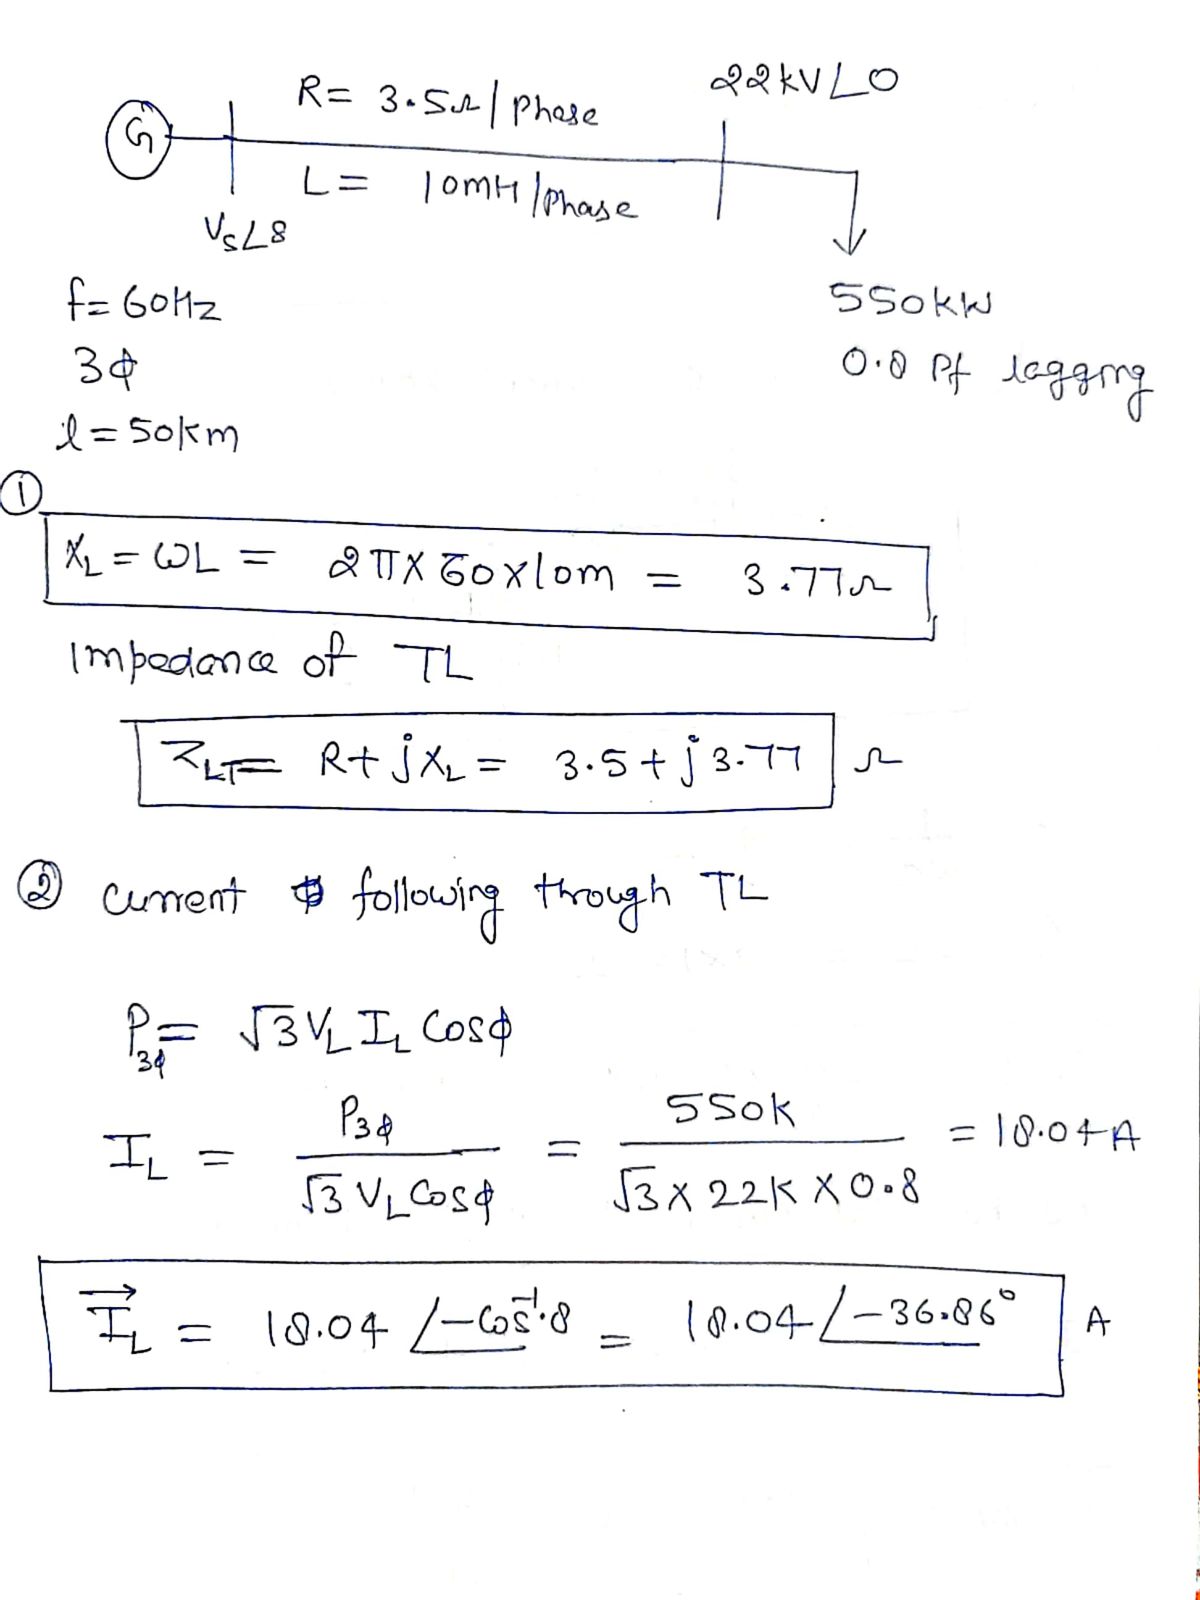 R= 3.5Ω/phase
22kV∠0
G
L= 10mH/phase
Vs∠δ
f=60Hz
550kW
3ϕ
0.8 Pf lagging
l=50km
①
X_L = ωL = 2π×60×10m = 3.77Ω
Impedance of TL
Z_LT= R+jX_L = 3.5+j3.77 Ω
② current following through TL
P_3ϕ= √3 V_L I_L Cosϕ
I_L = P_3ϕ / √3 V_L Cosϕ = 550k / √3×22K×0.8 = 18.04A
I⃗_L = 18.04 ∠-Cos⁻¹.8 = 18.04∠-36.86° A